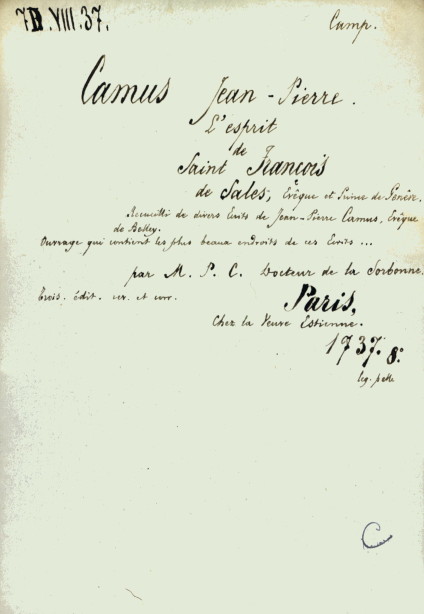 7D.VIII.37.
Camp.
Camus Jean-Pierre.
L'esprit
de
Saint François
de Sales, Evêque et Prince de Genève.
Receuilli de divers Ecrits de Jean-Pierre Camus, Evêque
de Belley.
Ouvrage qui contient les plus beaux endroits de ces Ecrits ...
par M. P. C. Docteur de la Sorbonne.
Trois. édit. rev. et corr.
Paris,
Chez la Veuve Estienne.
1737. 8°.
leg. pelle
C